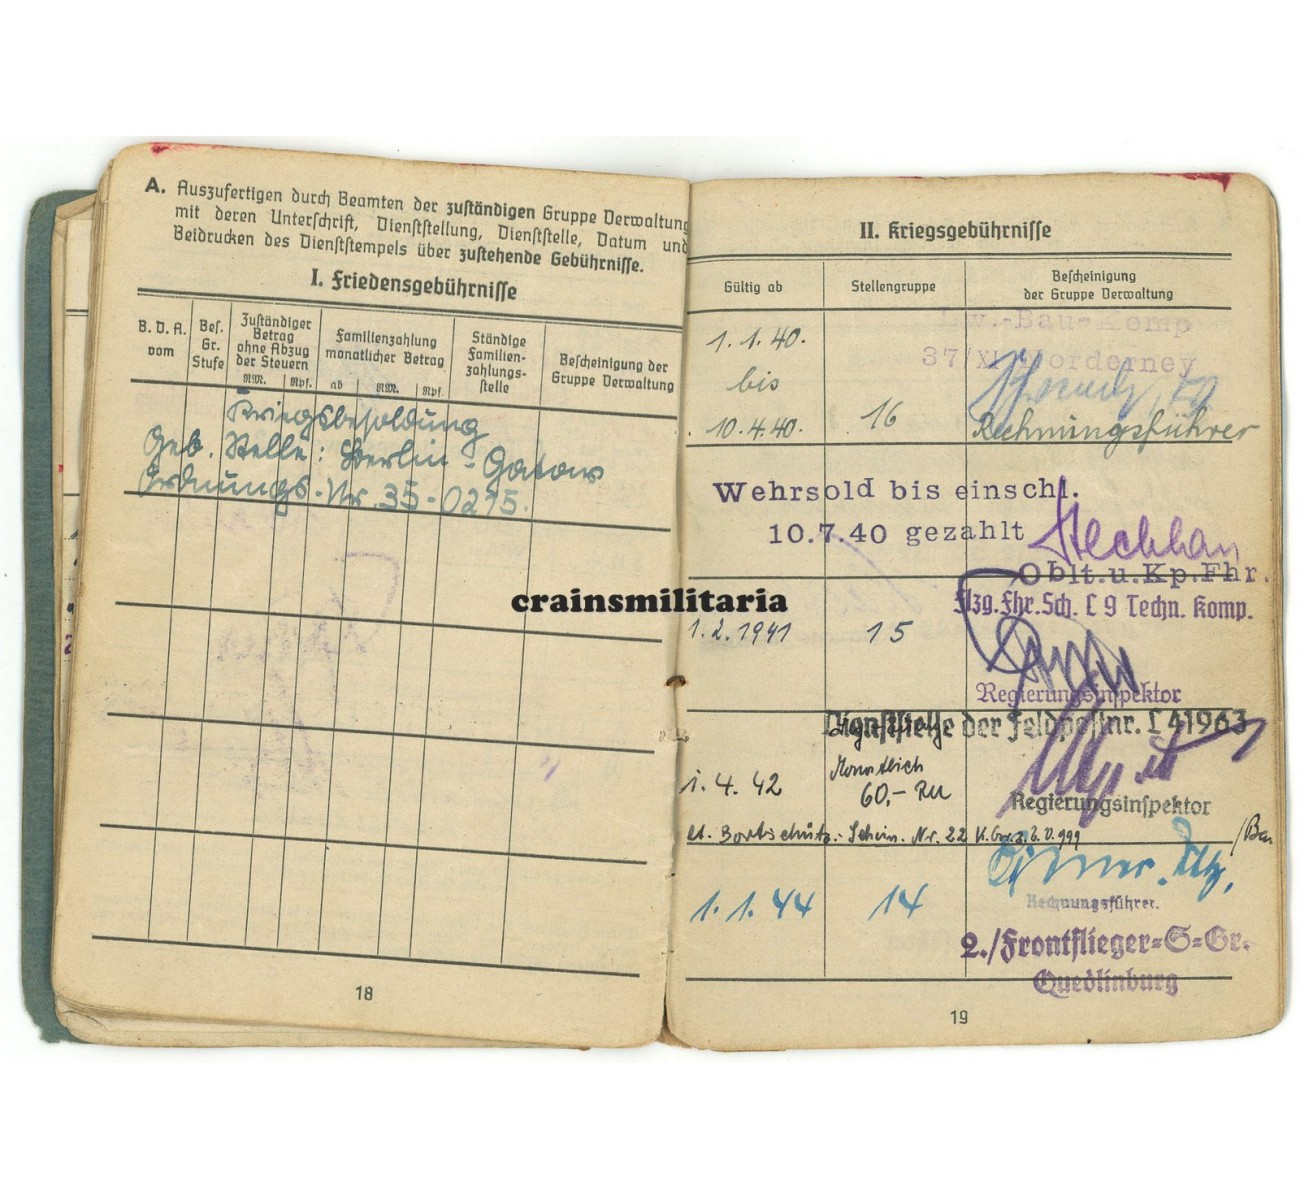 A. Auszufertigen durch Beamten der zuständigen Gruppe Verwaltung
mit deren Unterschrift, Dienststellung, Dienststelle, Datum und
Beidrucken des Dienststempels über zustehende Gebührnisse.
I. Friedensgebührnisse
B. D. A.
vom
Bes.
Gr.
Stufe
Zuständiger
Betrag
ohne Abzug
der Steuern
RM. Rpf.
Familienzahlung
monatlicher Betrag
ab RM. Rpf.
Ständige
Familien-
zahlungs-
stelle
Bescheinigung der
Gruppe Verwaltung
Kriegsbesoldung
Geb. Stelle: Berlin-Gatow
Ordnungs-Nr. 35-0275.
18
II. Kriegsgebührnisse
Gültig ab
Stellengruppe
Bescheinigung
der Gruppe Verwaltung
Lw.-Bau-Komp
37/XI Norderney
1.1.40.
bis
10.4.40.
16
Rechnungsführer
Wehrsold bis einschl.
10.7.40 gezahlt
Oblt.u.Kp.Fhr.
Flzg.Fhr.Sch. C 9 Techn. Komp.
crainsmilitaria
1.2.1941 15
Regierungsinspektor
Dienststelle der Feldpostnr. L 41963
1.4.42
Monatlich
60,- RM
Regierungsinspektor
lt. Bordschütz.-Schein. Nr. 22
1.1.44 14
Rechnungsführer.
2./Frontflieger-S-Gr.
Quedlinburg
19